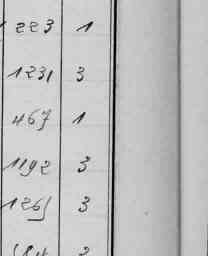 223 1
1231 3
467 1
1192 3
1265 3